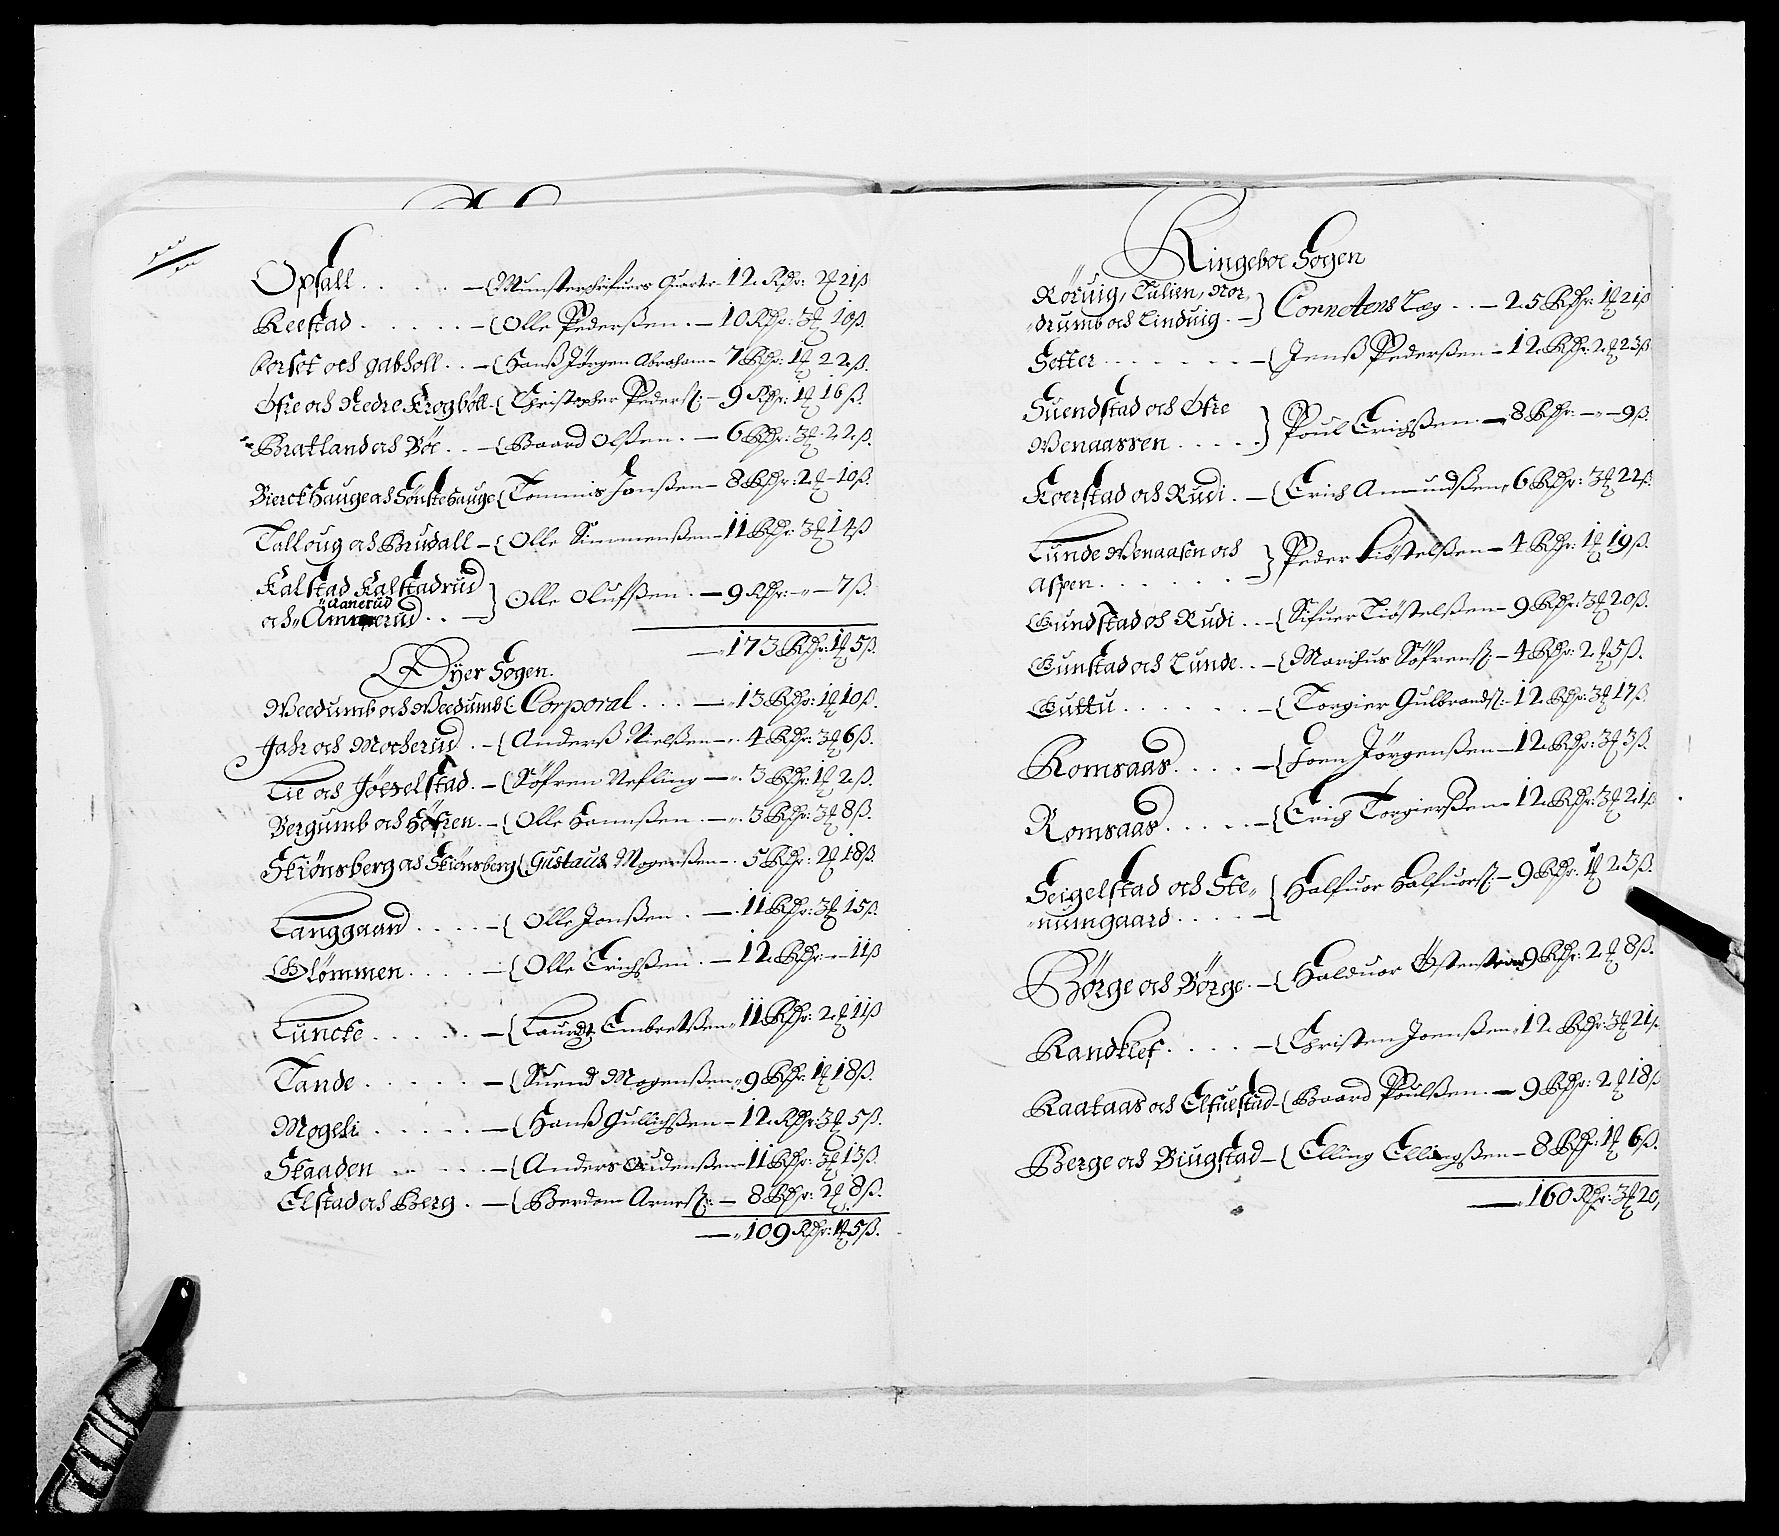 Opsall . . . . . – { Munsterschrifuers Quarter – 12 Rdr: 2 ȝ 21 ß
Reestad . . . . . . – { Olle Pederßen . – 10 Rdr: 3 ȝ 10 ß.
korset och gabholl . . – { Hanß Jørgen Abraham – 7 Rdr: 1 ȝ 22 ß.
Øfre och Nedre Krogbøll – { Christopher Pederß: – 9 Rdr: 1 ȝ 16 ß.
Bratland och Bøe . . – { Baard Olßen . – 6 Rdr: 3 ȝ 22 ß.
Bierckhauge och Sønstehauge { Tommis Jonßen – 8 Rdr: 2 ȝ – 10 ß.
Talloug och Brudall – { Olle Simmenßen – 11 Rdr: 3 ȝ 14 ß
Kalstad Kalstadrud
Aanerud
och . . – } Olle Olufßen . – 9 Rdr: – „ – 7 ß.
– 173 Rdr: 1 ȝ 5 ß.
Øyer Sogen.
Weedumb och Weedumb { Corporal . . . – „ 13 Rdr: 1 ȝ 10 ß.
Jahr och Mocherud . – { Anderß Nielßen – „ 4 Rdr: 3 ȝ 6 ß.
Lie och Jøevelstad . – { Søfren Nefling – „ 3 Rdr: 1 ȝ 2 ß.
Bergumb och Høfren . – { Olle Hannßen . – „ 3 Rdr: 3 ȝ 8 ß.
Skiønsberg och Skiønsberg { Gustaus Mogenßen – . 5 Rdr: 2 ȝ 18 ß.
Langgaard . . . . – { Olle Jonßen . – . 11 Rdr: 3 ȝ 15 ß.
Glømmen . . . . – { Olle Erichßen . – 12 Rdr: – „ – 11 ß
Luncke . . . . . – { Lauridtz Embretßen „ 11 Rdr: 2 ȝ 11 ß
Tande . . . . . – { Suend Mogenßen „ 9 Rdr: 1 ȝ 18 ß.
Mogeli . . . . . – { Hanß Gullichßen – 12 Rdr 3 ȝ 5 ß.
Skaaden . . . . . – { Anders Audenßen – 11 Rdr: 3 ȝ 13 ß.
Elstad och Berg . – { Berdon Arneß: – 8 Rdr: 2 ȝ 8 ß.
– „ 109 Rdr: 1 ȝ 5 ß.
Ringeboe Sogen
Røruig, Tulien, Nor„
„drumb och Linduig . – } Cornetens Læg . . – 25 Rdr: 1 ȝ 21 ß
Setter . . . . . . – { Jenß Pederßen – 12 Rdr: 2 ȝ 23 ß
Suendstad och Øfre
Wenaassen . . . . . } Poul Erichßen – 8 Rdr: – „ – 9 ß.
Koerstad och Rudi . – { Erich Amundßen „ 6 Rdr: 3 ȝ 22 ß.
Lunde Wenaasen och
Aspen . . . . . . – } Peder Kiøstelßen – 4 Rdr: 1 ȝ 19 ß.
Gundstad och Rudi . . – { Sifuer Tiøstelßen – 9 Rdr: 3 ȝ 20 ß.
Gunstad och Lunde . . – { Marchus Søfrenß: – 4 Rdr: 2 ȝ 5 ß.
Guttu . . . . . . – { Torgier Gulbrandß: – 12 Rdr: 3 ȝ 17 ß.
Romsaas . . . . – { Joen Jørgenßen – 12 Rdr: 3 ȝ 3 ß.
Romsaas . . . . . – { Erich Torgierßen – 12 Rdr: 3 ȝ 21 ß
Seigelstad och Ste„
„numgaard . . . . – { Halfuor Halfuorß: – 9 Rdr: 1 ȝ 23 ß.
Børge och Børge . – { Halduor 9 Rdr: 2 ȝ 8 ß.
Randklef . . . . – { Christen Joenßen „ 12 Rdr: 3 ȝ 21 ß
Kaataas och Elfuestad – { Baard Poulßen . – 9 Rdr: 2 ȝ 18 ß
Berge och Biugstad – { Elling Ellingßen – 8 Rdr: 1 ȝ 6 ß.
– „ 160 Rdr: 3 ȝ 20